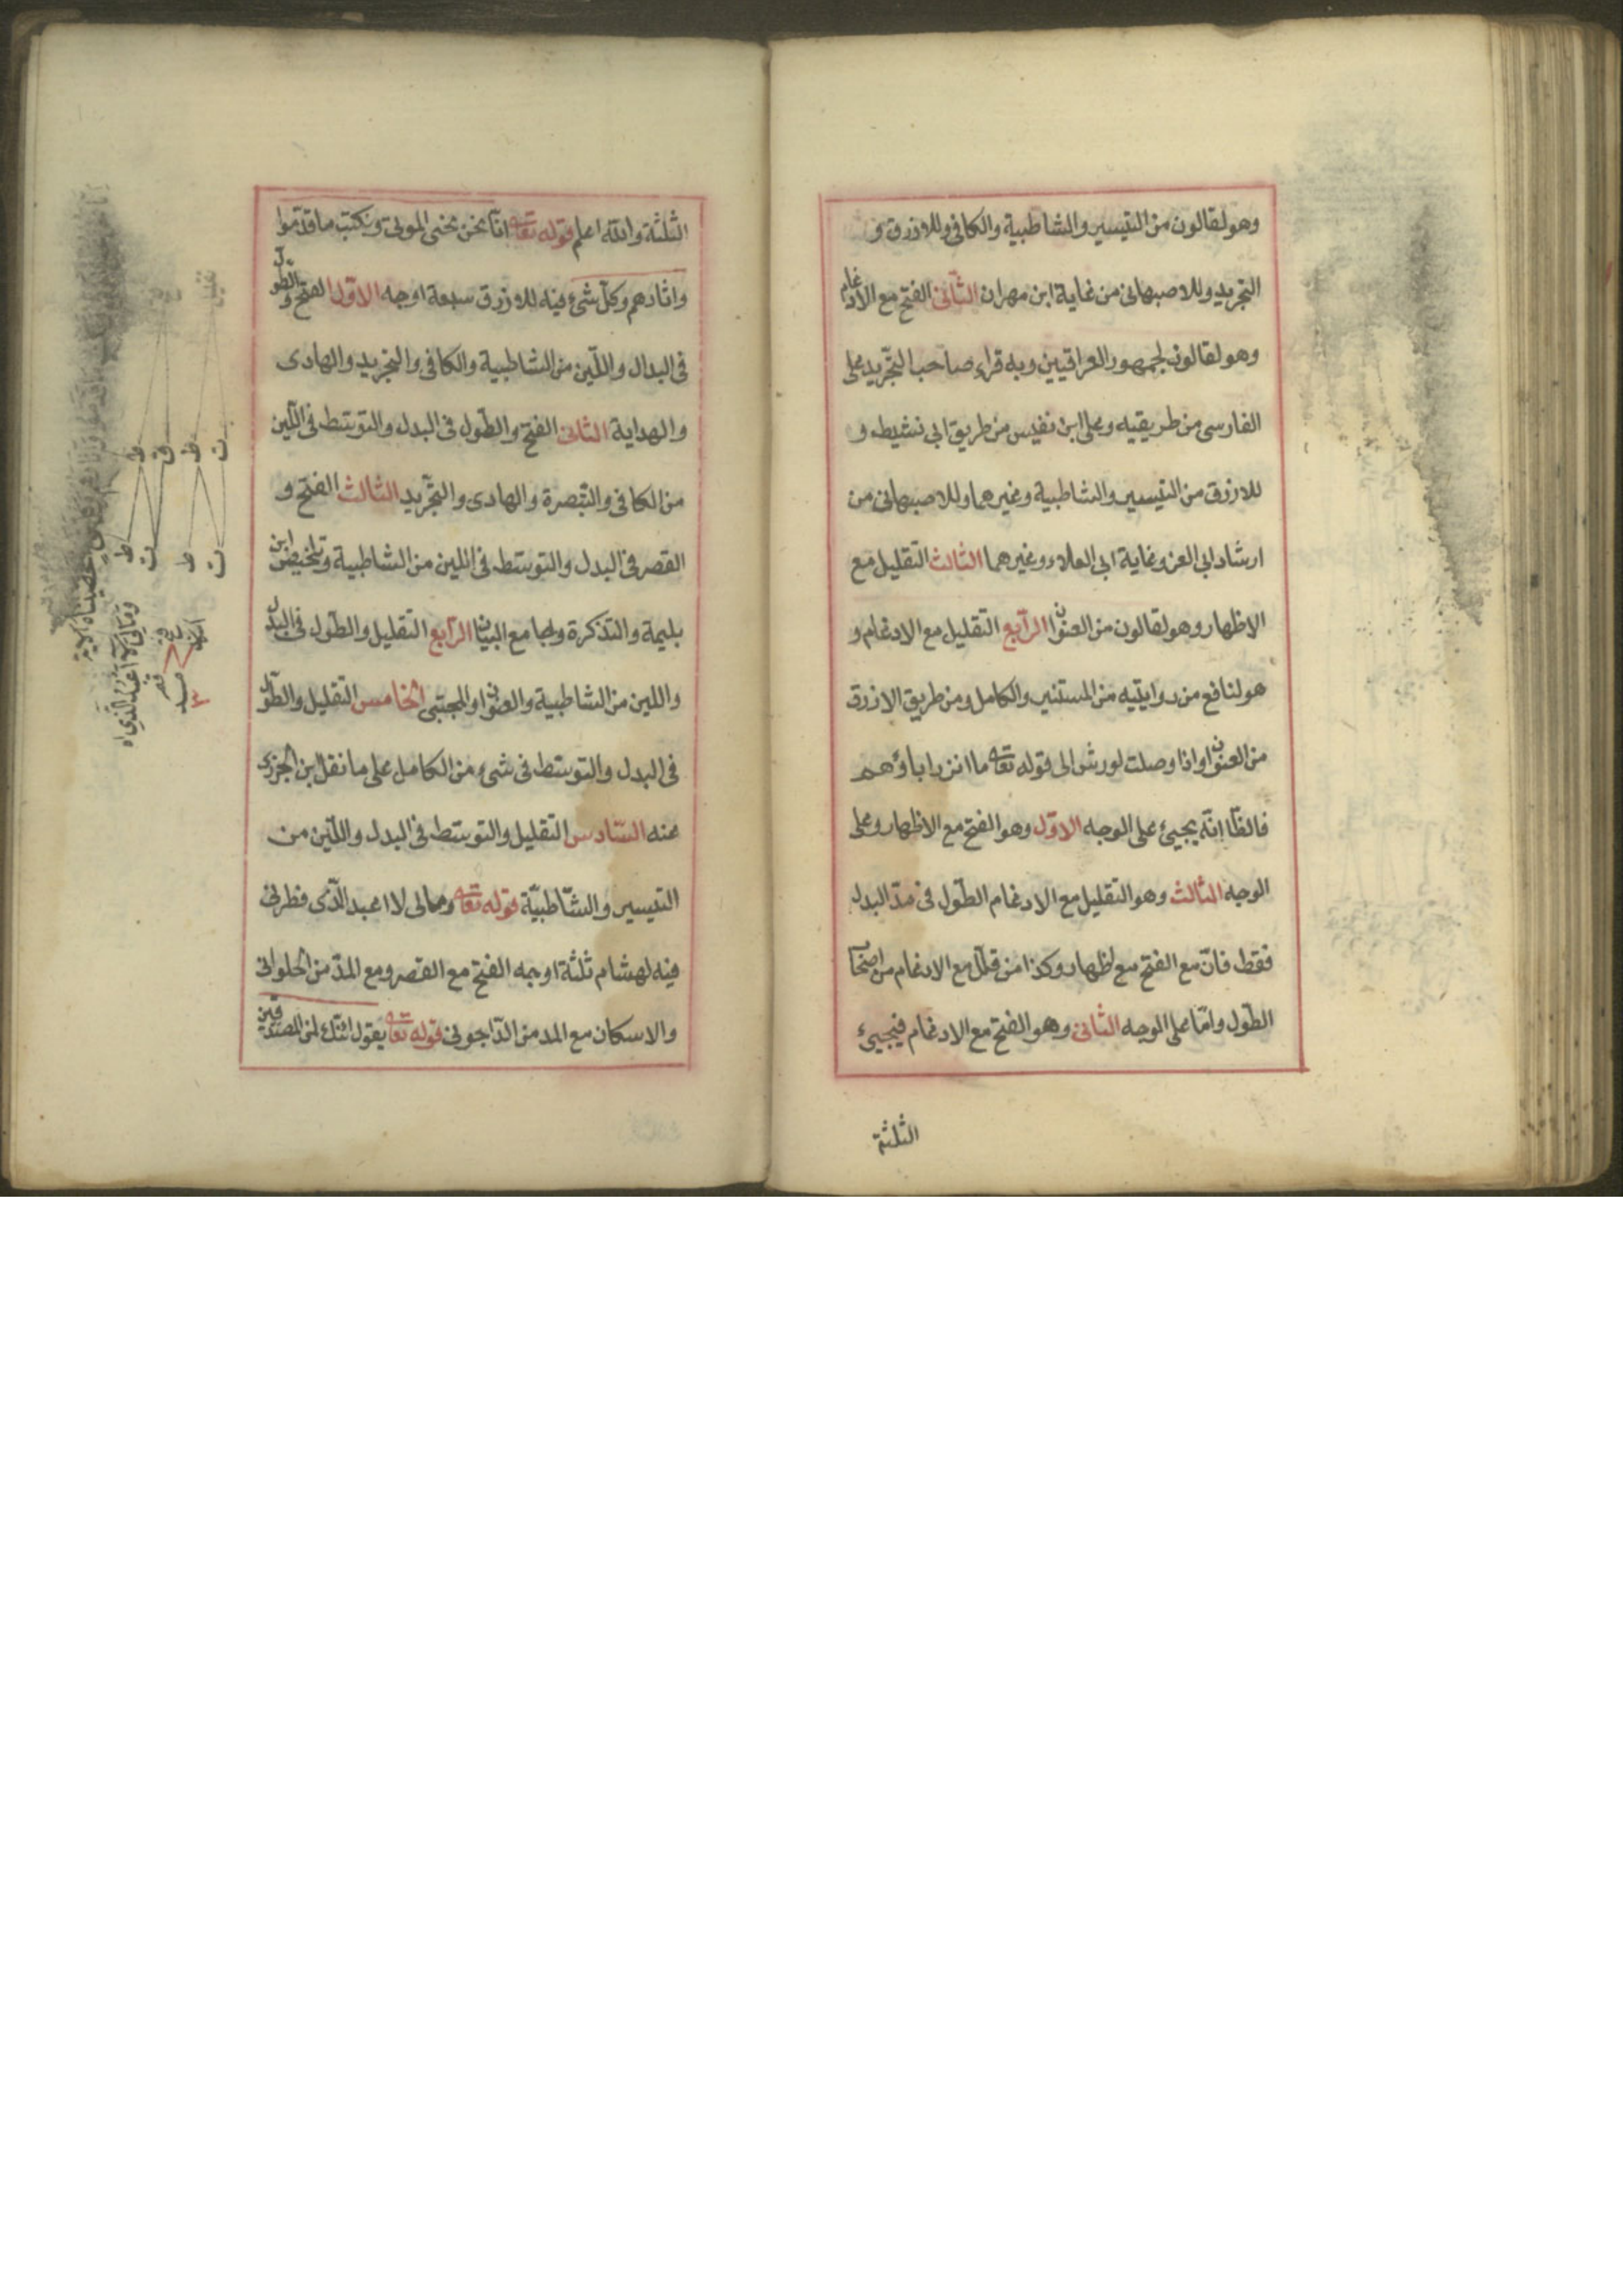 وهو لقالون من التيسير والشاطبية والكافي وللازرق و
التجريد وللاصبهاني من غاية ابن مهران الثاني الفتح مع الادغام
وهو لقالون لجمهور العراقيين وبه قراء صاحب التجريد على
الفارسي من طريقيه وعلى ابن نفيس من طريق ابي نشيط و
للازرق من التيسير والشاطبية وغيرهما وللاصبهاني من
ارشاد ابي العز وغاية ابي العلاء وغيرهما الثالث التقليل مع
الاظهار وهو لقالون من العنوان الرابع التقليل مع الادغام و
هو لنافع من روايتيه من المستنير والكامل ومن طريق الازرق
من العنوان واذا وصلت لورش الى قوله تعا ما انذر اباؤهم
فالظاّ انّه يجيئ على الوجه الاوّل وهو الفتح مع الاظهار وعلى
الوجه الثالث وهو التقليل مع الادغام الطّول في مدّ البدل
فقط فانّ مع الفتح مع اظهار وكذا من قلل مع الادغام من اصحاب
الطّول وامّا على الوجه الثاني وهو الفتح مع الادغام فيجيئ
الثلثة
الثلثة والله اعلم قوله تعا انّا نحن نحيي الموتى ونكتب ما قدّموا
واثارهم وكلّ شيء فيه للازرق سبعة اوجه الاوّل الفتح والطّول
في البدل واللّين من الشاطبية والكافي والتجريد والهادي
والهداية الثاني الفتح والطّول في البدل والتوسّط في اللّين
من الكافي والتّبصرة والهادي والتّجريد الثالث الفتح و
القصر في البدل والتوسّط في اللين من الشاطبية وتلخيص ابن
بليمة والتذكرة وجامع البيان الرّابع التقليل والطّول في البدل
واللين من الشاطبية والعنوان والمجتبى الخامس التقليل والطّول
في البدل والتوسّط في شيء من الكامل على ما نقل ابن الجزري
عنه السّادس التقليل والتوسّط في البدل واللّين من
التيسير والشّاطبيّة قوله تعا ومالي لا اعبد الّذي فطرني
فيه لهشام ثلثة اوجه الفتح مع القصر ومع المدّ من الحلواني
والاسكان مع المد من الدّاجوني قوله تعا يقول ائنّك لمن المصدّقين
ومالي لا اعبد الّذي اه